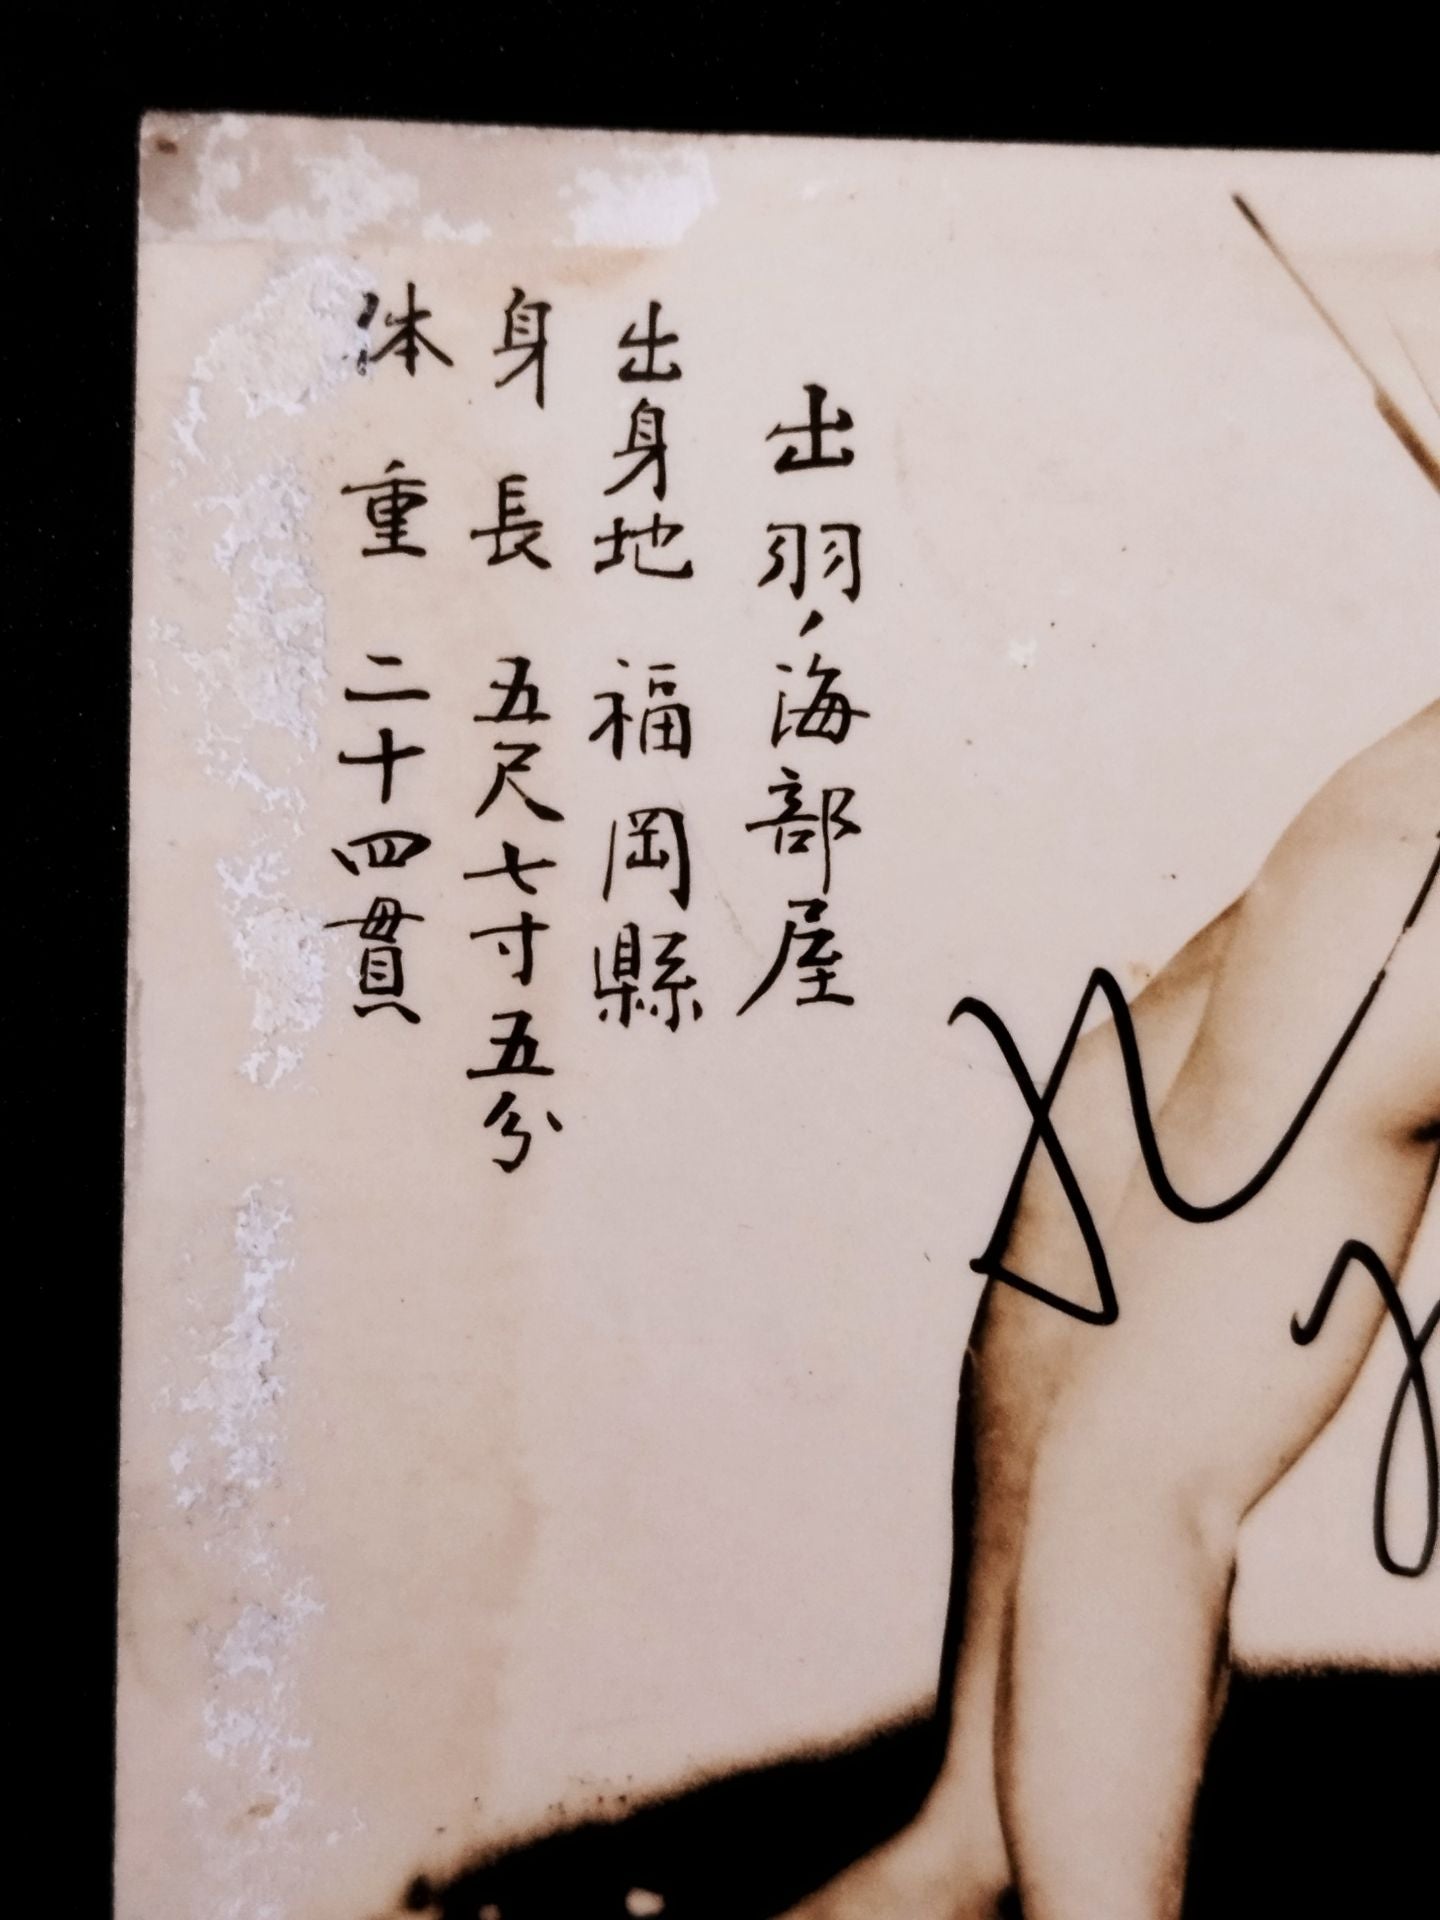 出羽ノ海部屋
出身地 福岡縣
身長 五尺七寸五分
体重 二十四貫